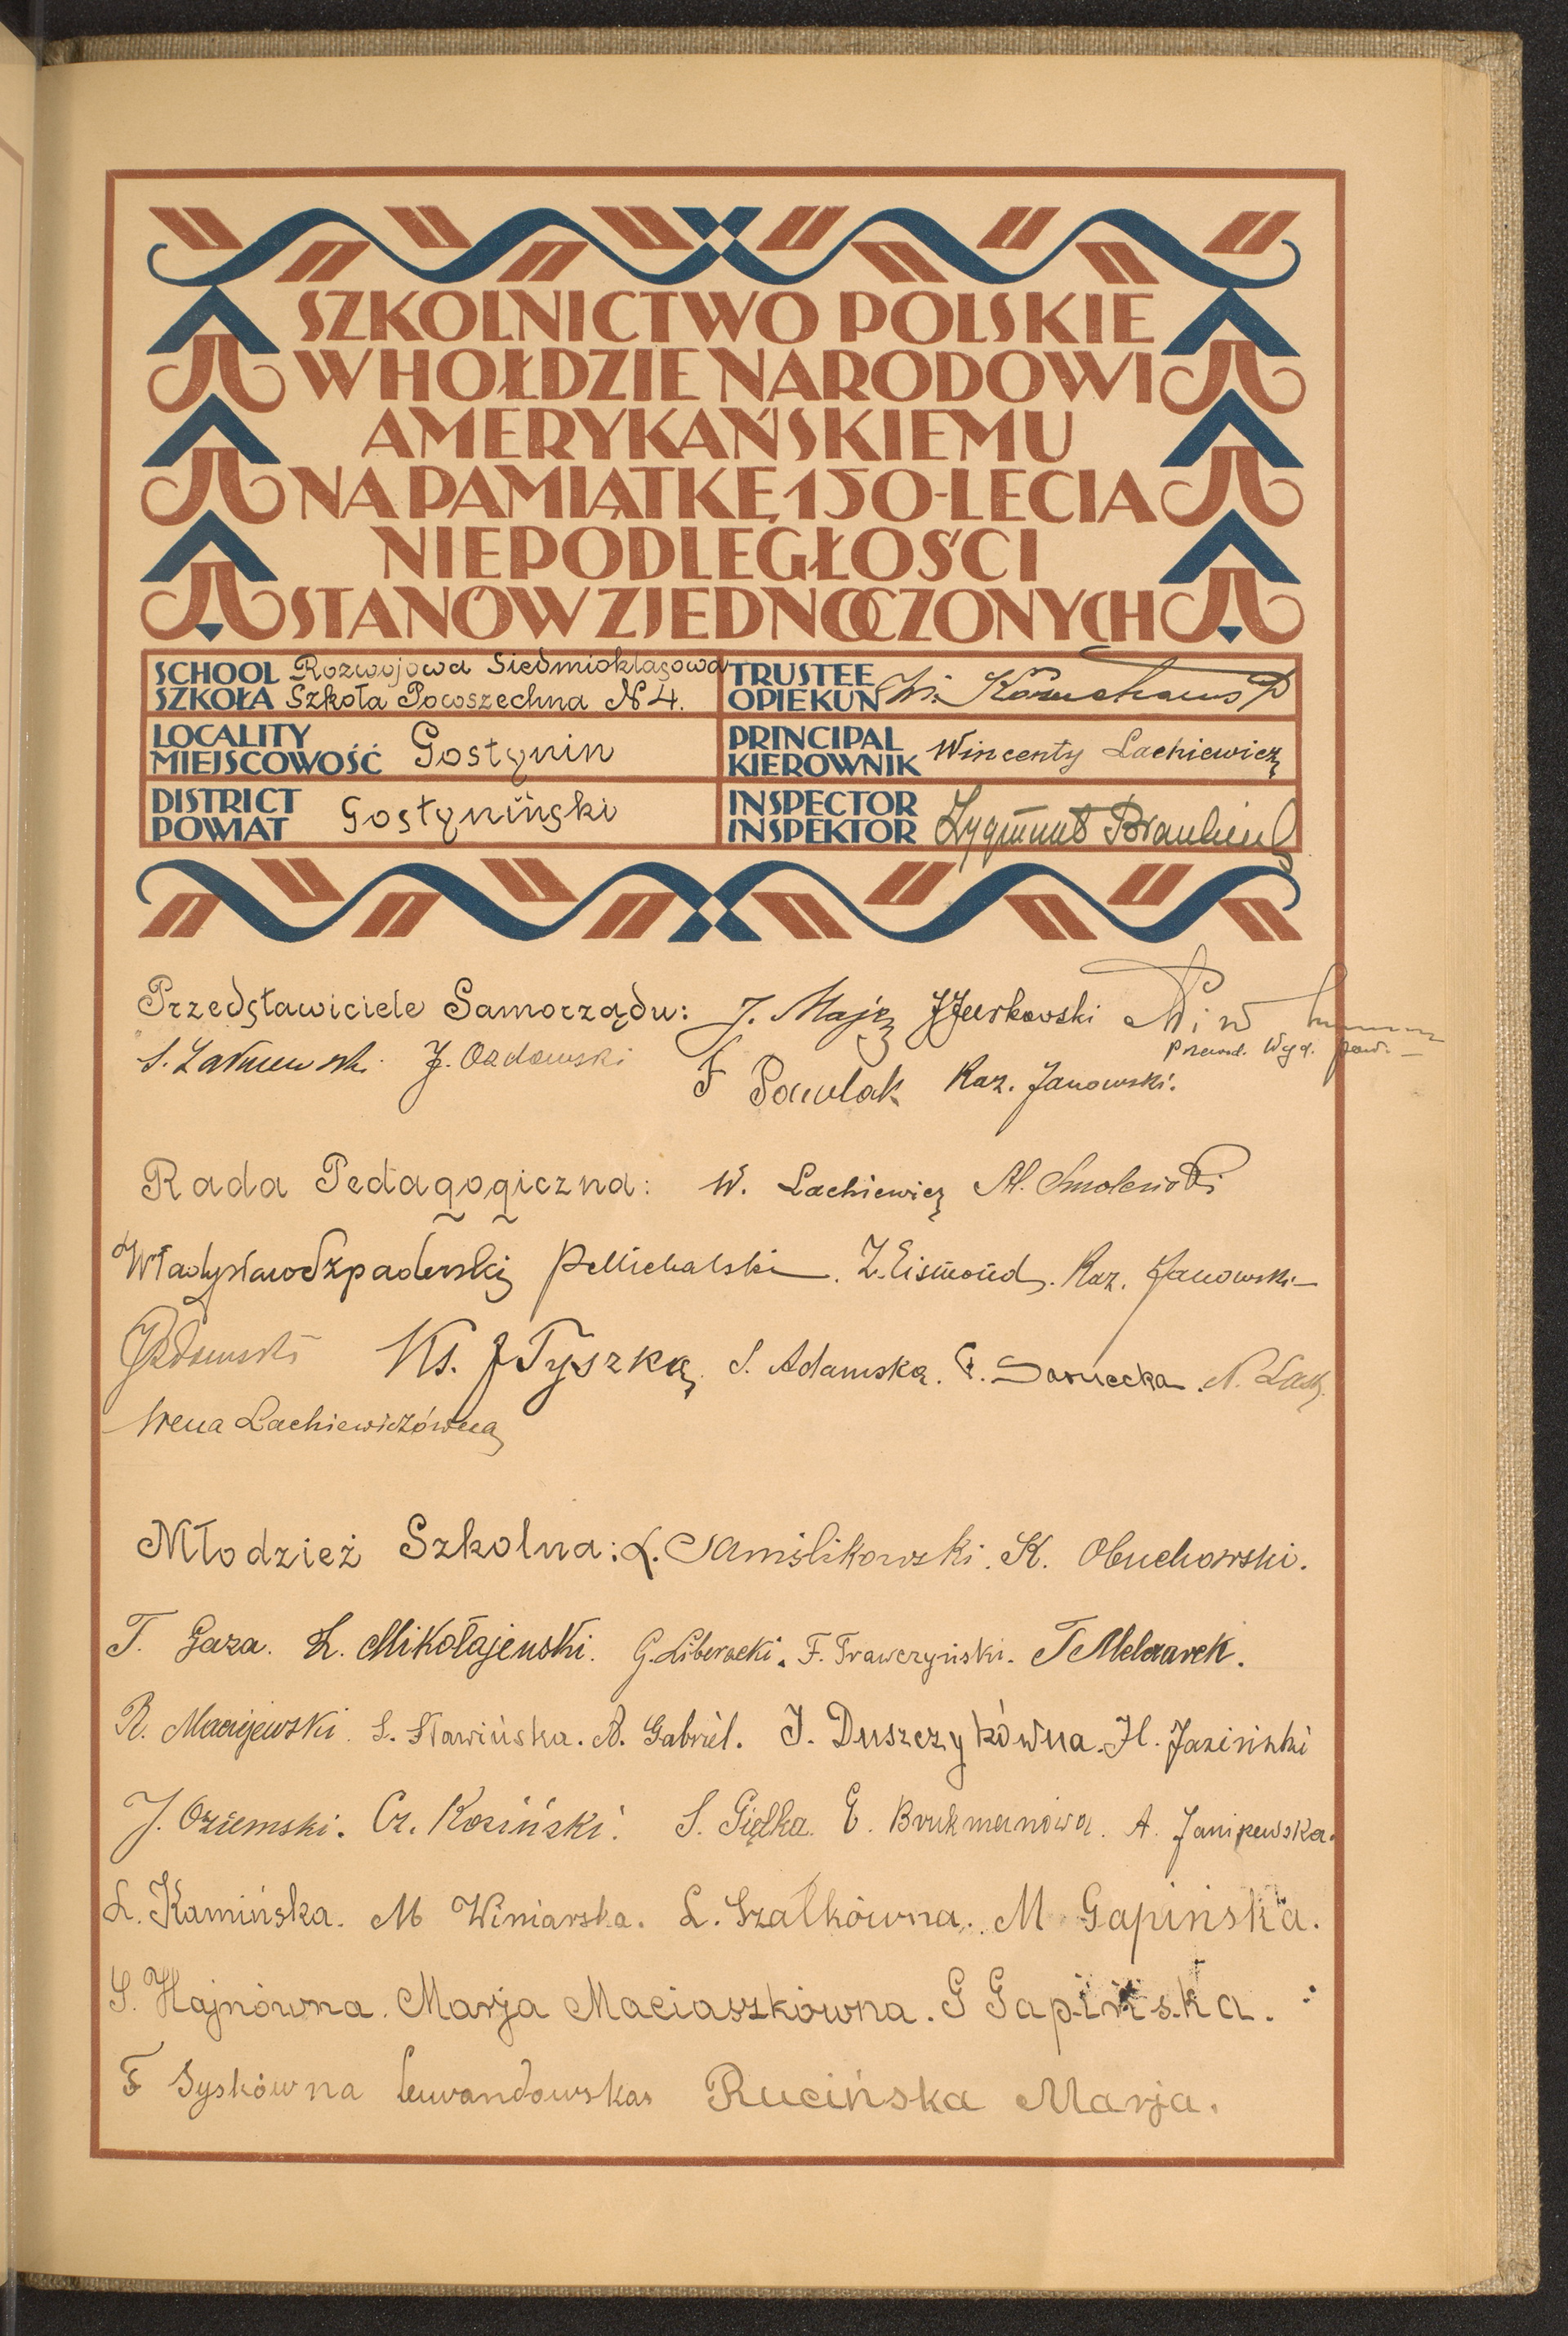 SZKOLNICTWO POLSKIE
W HOŁDZIE NARODOWI
AMERYKAŃSKIEMU
NA PAMIĄTKĘ 150-LECIA
NIEPODLEGŁOŚCI
STANÓW ZJEDNOCZONYCH
SCHOOL Rozwojowa Siedmioklasowa
SZKOŁA Szkoła Powszechna N 4.
TRUSTEE
OPIEKUN
LOCALITY
MIEJSCOWOŚĆ Gostynin
PRINCIPAL
KIEROWNIK Wincenty Lachiewicz
DISTRICT
POWIAT Gostyniński
INSPECTOR
INSPEKTOR Zygmunt
Przedstawiciele Samorządu: J. Majez J. Jurkowski
J. Ozdowski F Pawlak Kaz. Janowski.
Rada Pedagogiczna: W. Lachiewicz M. Smoleński
Władysław Szpaderski P. Michalski. Z. Eismond. Kaz. Janowski
Ks. J Tyszka. S. Adamska. Sarnecka.
Irena Lachiewiczówna
Młodzież Szkolna: L. Samślikowski. K. Obuchowski.
T. Gaza. Z. Mikołajewski. G. Liberacki. F. Trawczyński.
R. Maciejewski. S. Sławińska. A. Gabriel. J. Duszczykówna. H. Jasiński
J. Oziemski. Cz. Kosiński. S. Giełka. E. Brukmanówa. A. Janiszewska.
L. Kamińska. M Winiarska. L. Szalkówna. M Gapińska.
S. Hajnówna. Marja Maciaszkówna. G Gapińska.
F Syskówna Lewandowska Rucińska Marja.